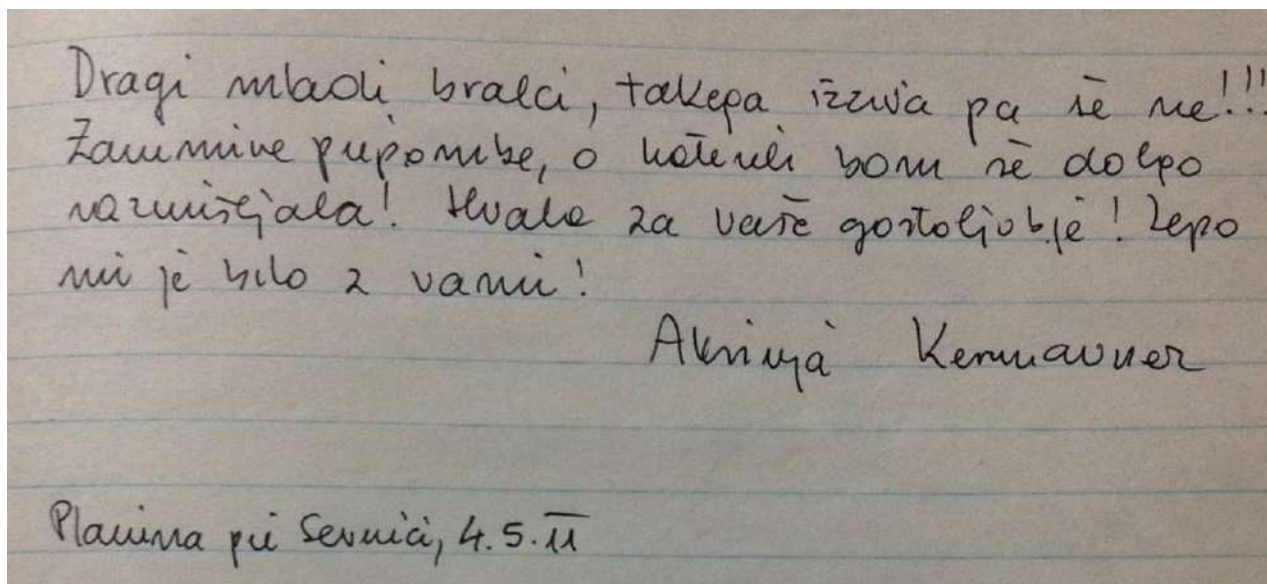 Dragi mladi bralci, takega izziva pa še ne!!!
Zanimive pripombe, o katerih bom še dolgo
razmišljala! Hvala za vaše gostoljubje! Lepo
mi je bilo z vami!
Aksinja Kermauner
Planina pri Sevnici, 4.5.11